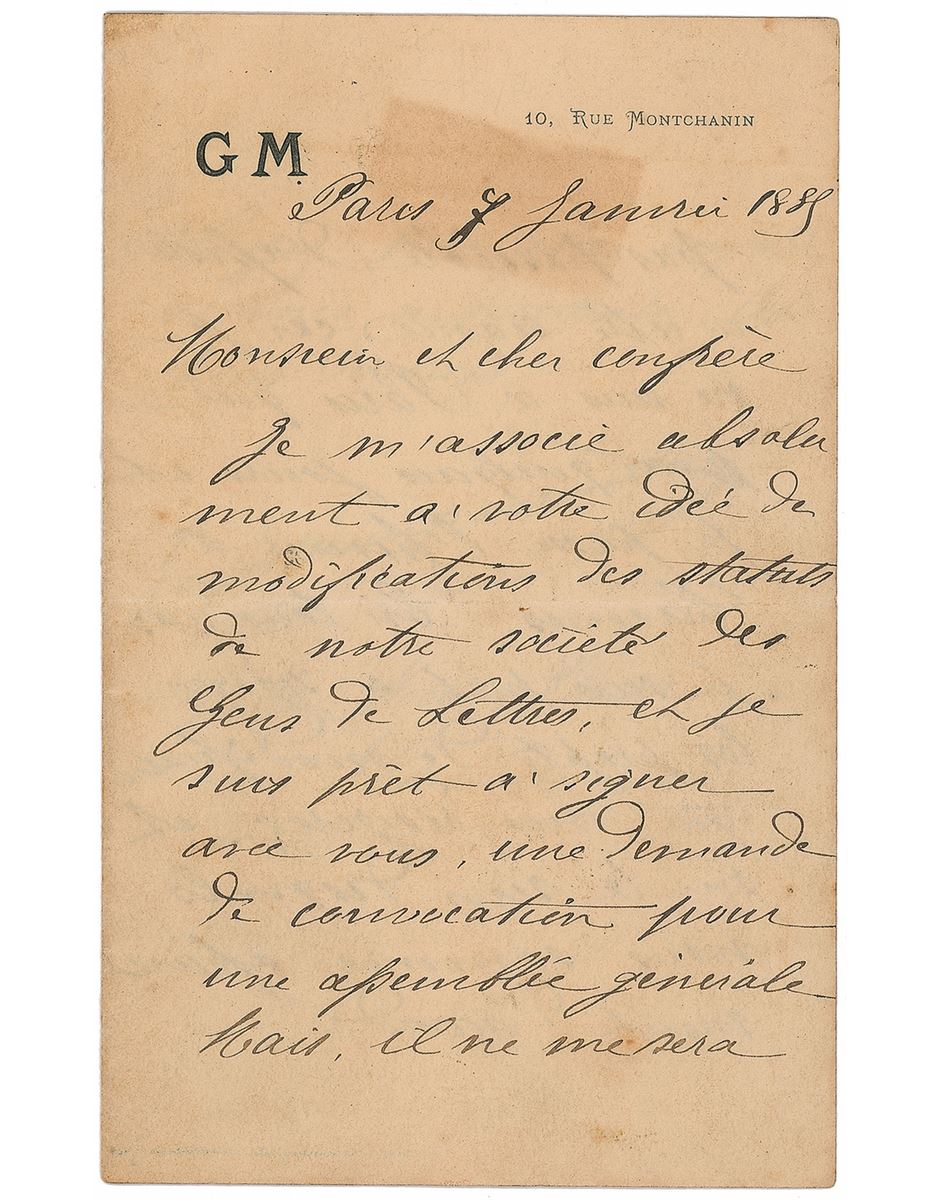 10, RUE MONTCHANIN
GM
Paris 7 Janvier 1889
Monsieur et cher confrère
Je m'associe absolu
ment à votre idée de
modifications des statuts
de notre société des
Gens de Lettres, et je
suis prêt à signer
avec vous, une demande
de convocation pour
une assemblée générale
Mais, il ne me sera